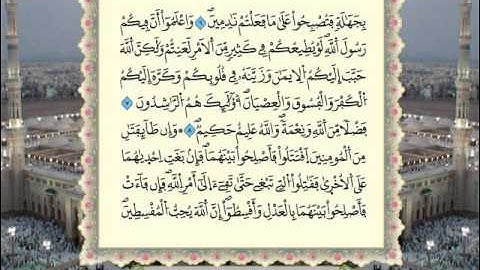 بِجَهَٰلَةٖ فَتُصْبِحُواْ عَلَىٰ مَا فَعَلْتُمْ نَٰدِمِينَۖ ٦ وَاعْلَمُوٓاْ أَنَّ فِيكُمْ
رَسُولَ اَللَّهِۖ لَوْ يُطِيعُكُمْ فِے كَثِيرٖ مِّنَ اَلَامْرِ لَعَنِتُّمْۖ وَلَٰكِنَّ اَللَّهَ
حَبَّبَ إِلَيْكُمُ اُلِايمَٰنَ وَزَيَّنَهُۥ فِے قُلُوبِكُمْ وَكَرَّهَ إِلَيْكُمُ
اُلْكُفْرَ وَالْفُسُوقَ وَالْعِصْيَانَۖ أُوْلَٰٓئِكَ هُمُ اُلرَّٰشِدُونَ ٧
فَضْلاٗ مِّنَ اَللَّهِ وَنِعْمَةٗۖ وَاللَّهُ عَلِيمٌ حَكِيمٞۖ ٨ وَإِن طَآئِفَتَٰنِ
مِنَ اَلْمُومِنِينَ اَقْتَتَلُواْ فَأَصْلِحُواْ بَيْنَهُمَاۖ فَإِنۢ بَغَتِ اِحْد۪ىٰهُمَا
عَلَى اَلُاخْر۪ىٰ فَقَٰتِلُواْ اُلتِے تَبْغِے حَتَّىٰ تَفِےٓءَ اِلَىٰٓ أَمْرِ اِللَّهِۖ فَإِن فَآءَتْ
فَأَصْلِحُواْ بَيْنَهُمَا بِالْعَدْلِ وَأَقْسِطُوٓاْۖ إِنَّ اَللَّهَ يُحِبُّ اُلْمُقْسِطِينَۖ